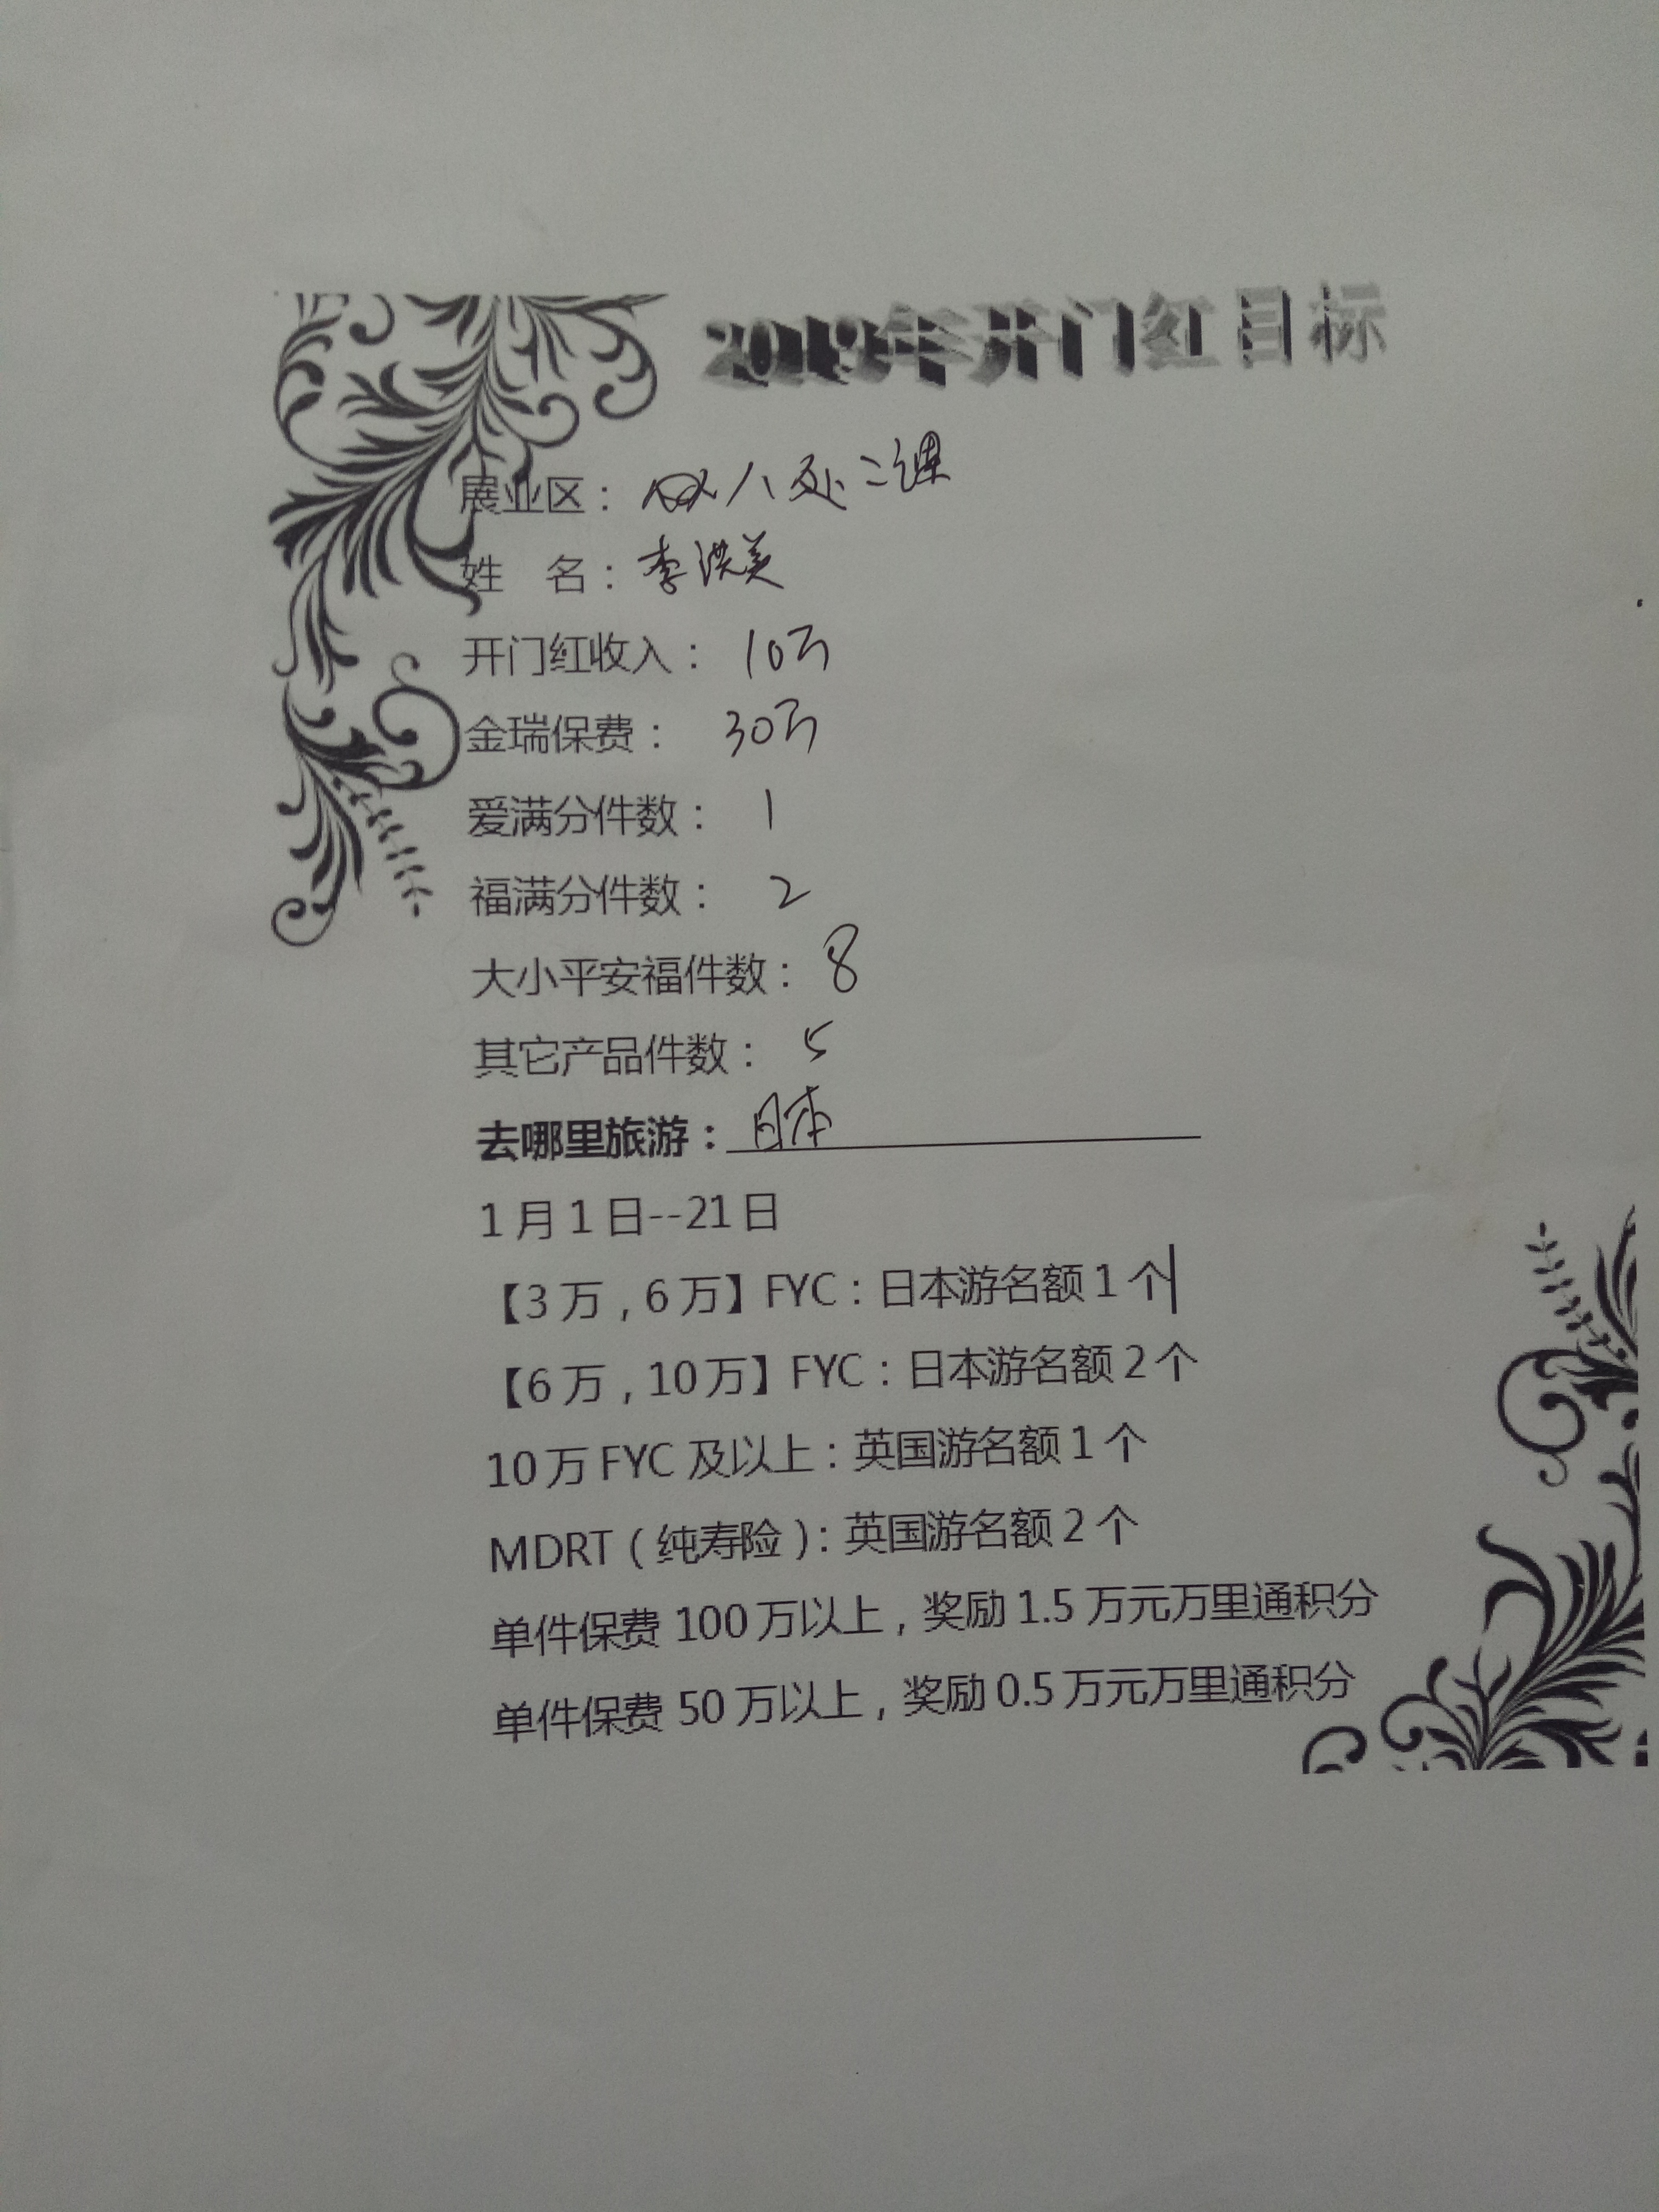 2019年开门红目标
展业区： 八处二课
姓 名：李洪美
开门红收入： 10万
金瑞保费： 30万
爱满分件数： 1
福满分件数： 2
大小平安福件数：8
其它产品件数： 5
去哪里旅游：日本
1月1日--21日
【3万，6万】FYC：日本游名额1个
【6万，10万】FYC：日本游名额2个
10万FYC及以上：英国游名额1个
MDRT（纯寿险）：英国游名额2个
单件保费100万以上，奖励1.5万元万里通积分
单件保费50万以上，奖励0.5万元万里通积分